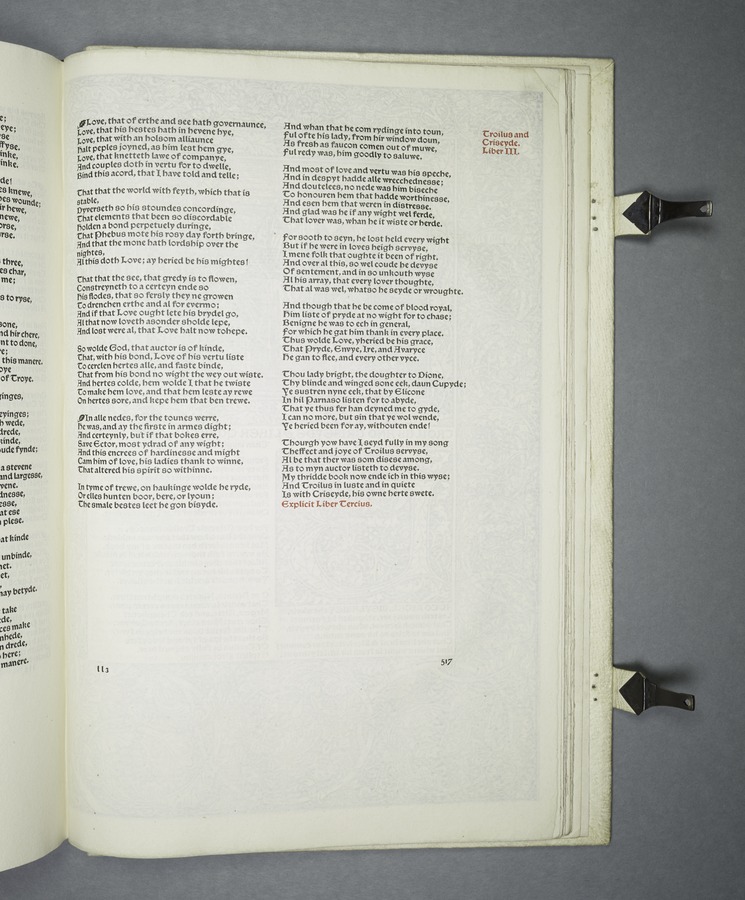 e;
eye;
se
ffyse.
inke,
inke.
de!
es knewe,
es wounde;
ir hewe,
newe,
orse,
rse.
three,
es char,
me;
s to ryse,
sone,
nd hir chere,
nt to done,
e;
this manere.
oye
of Troye.
inges,
eyinges;
h wede,
drede,
tinde,
ude fynde;
a stevene
and largesse,
vene.
nesse,
esse,
at ese
plese.
at kinde
unbinde,
net.
et,
may betyde.
take
de,
ces make
nhede,
n drede,
here;
manere.
Love, that of erthe and see hath governaunce,
Love, that his hestes hath in hevene hye,
Love, that with an holsom alliaunce
Halt peples joyned, as him lest hem gye,
Love, that knetteth lawe of companye,
And couples doth in vertu for to dwelle,
Bind this acord, that I have told and telle;
That that the world with feyth, which that is
stable,
Dyverseth so his stoundes concordinge,
That elements that been so discordable
Holden a bond perpetuely duringe,
That Phebus mote his rosy day forth bringe,
And that the mone hath lordship over the
nightes,
Al this doth Love; ay heried be his mightes!
That that the see, that gredy is to flowen,
Constreyneth to a certeyn ende so
His flodes, that so fersly they ne growen
To drenchen erthe and al for evermo;
And if that Love ought lete his brydel go,
Al that now loveth asonder sholde lepe,
And lost were al, that Love halt now tohepe.
So wolde God, that auctor is of kinde,
That, with his bond, Love of his vertu liste
To cerclen hertes alle, and faste binde,
That from his bond no wight the wey out wiste.
And hertes colde, hem wolde I that he twiste
To make hem love, and that hem leste ay rewe
On hertes sore, and kepe hem that ben trewe.
In alle nedes, for the tounes werre,
He was, and ay the firste in armes dight;
And certeynly, but if that bokes erre,
Save Ector, most ydrad of any wight;
And this encrees of hardinesse and might
Cam him of love, his ladies thank to winne,
That altered his spirit so withinne.
In tyme of trewe, on haukinge wolde he ryde,
Or elles hunten boor, bere, or lyoun;
The smale bestes leet he gon bisyde.
And whan that he com rydinge into toun,
Ful ofte his lady, from hir window doun,
As fresh as faucon comen out of muwe,
Ful redy was, him goodly to saluwe.
And most of love and vertu was his speche,
And in despyt hadde alle wrecchednesse;
And doutelees, no nede was him biseche
To honouren hem that hadde worthinesse,
And esen hem that weren in distresse.
And glad was he if any wight wel ferde,
That lover was, whan he it wiste or herde.
For sooth to seyn, he lost held every wight
But if he were in loves heigh servyse,
I mene folk that oughte it been of right.
And over al this, so wel coude he devyse
Of sentement, and in so unkouth wyse
Al his array, that every lover thoughte,
That al was wel, what so he seyde or wroughte.
And though that he be come of blood royal,
Him liste of pryde at no wight for to chase;
Benigne he was to ech in general,
For which he gat him thank in every place.
Thus wolde Love, yheried be his grace,
That Pryde, Envye, Ire, and Avaryce
He gan to flee, and every other vyce.
Thou lady bright, the doughter to Dione,
Thy blinde and winged sone eek, daun Cupyde;
Ye sustren nyne eek, that by Elicone
In hil Parnaso listen for to abyde,
That ye thus fer han deyned me to gyde,
I can no more, but sin that ye wol wende,
Ye heried been for ay, withouten ende!
Thourgh yow have I seyd fully in my song
Theffect and joye of Troilus servyse,
Al be that ther was som disese among,
As to myn auctor listeth to devyse.
My thridde book now ende ich in this wyse;
And Troilus in luste and in quiete
Is with Criseyde, his owne herte swete.
Explicit Liber Tercius.
Troilus and
Criseyde.
Liber III.
ll3
517